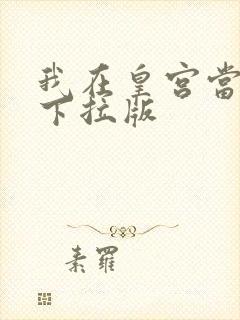 我在皇宫當
下拉版
素羅